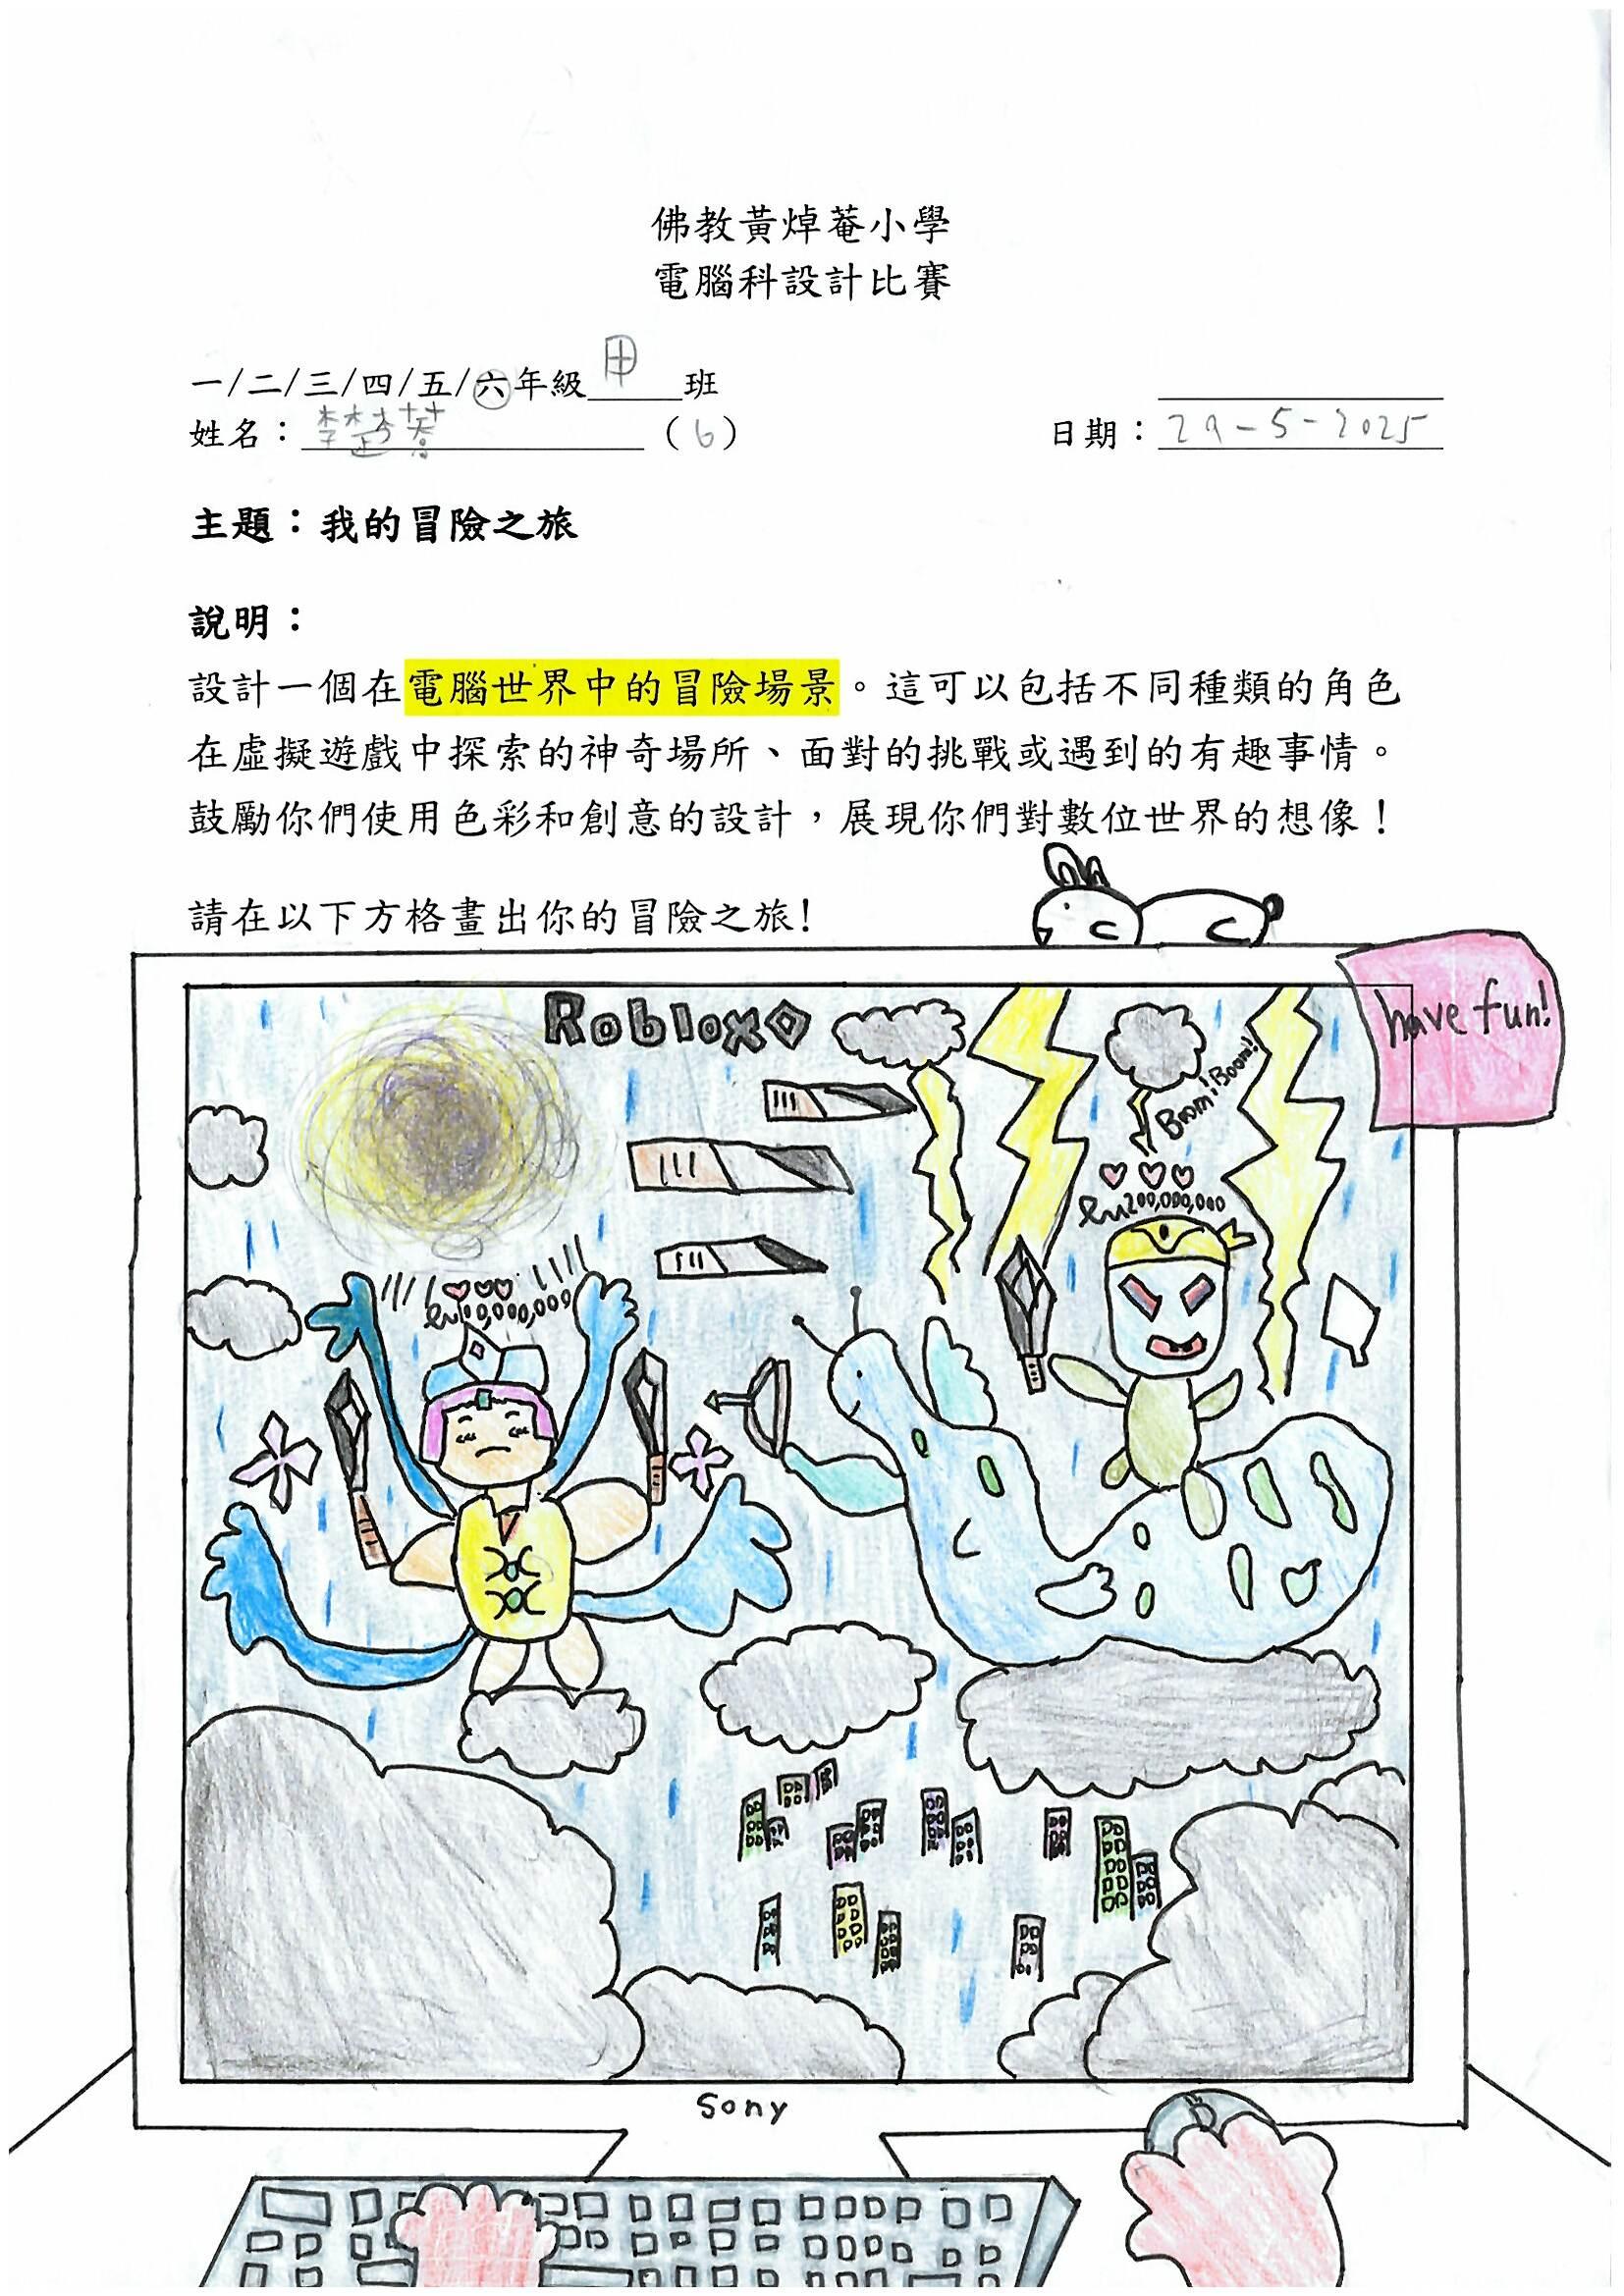 佛教黃焯菴小學
電腦科設計比賽
一/二/三/四/五/六年級 甲 班
姓名：李楚蕎 (6)
日期：29-5-2025
主題：我的冒險之旅
說明：
設計一個在電腦世界中的冒險場景。這可以包括不同種類的角色
在虛擬遊戲中探索的神奇場所、面對的挑戰或遇到的有趣事情。
鼓勵你們使用色彩和創意的設計，展現你們對數位世界的想像！
請在以下方格畫出你的冒險之旅!
have fun!
Roblox
Boom! Boom!
lv 200,000,000
Sony